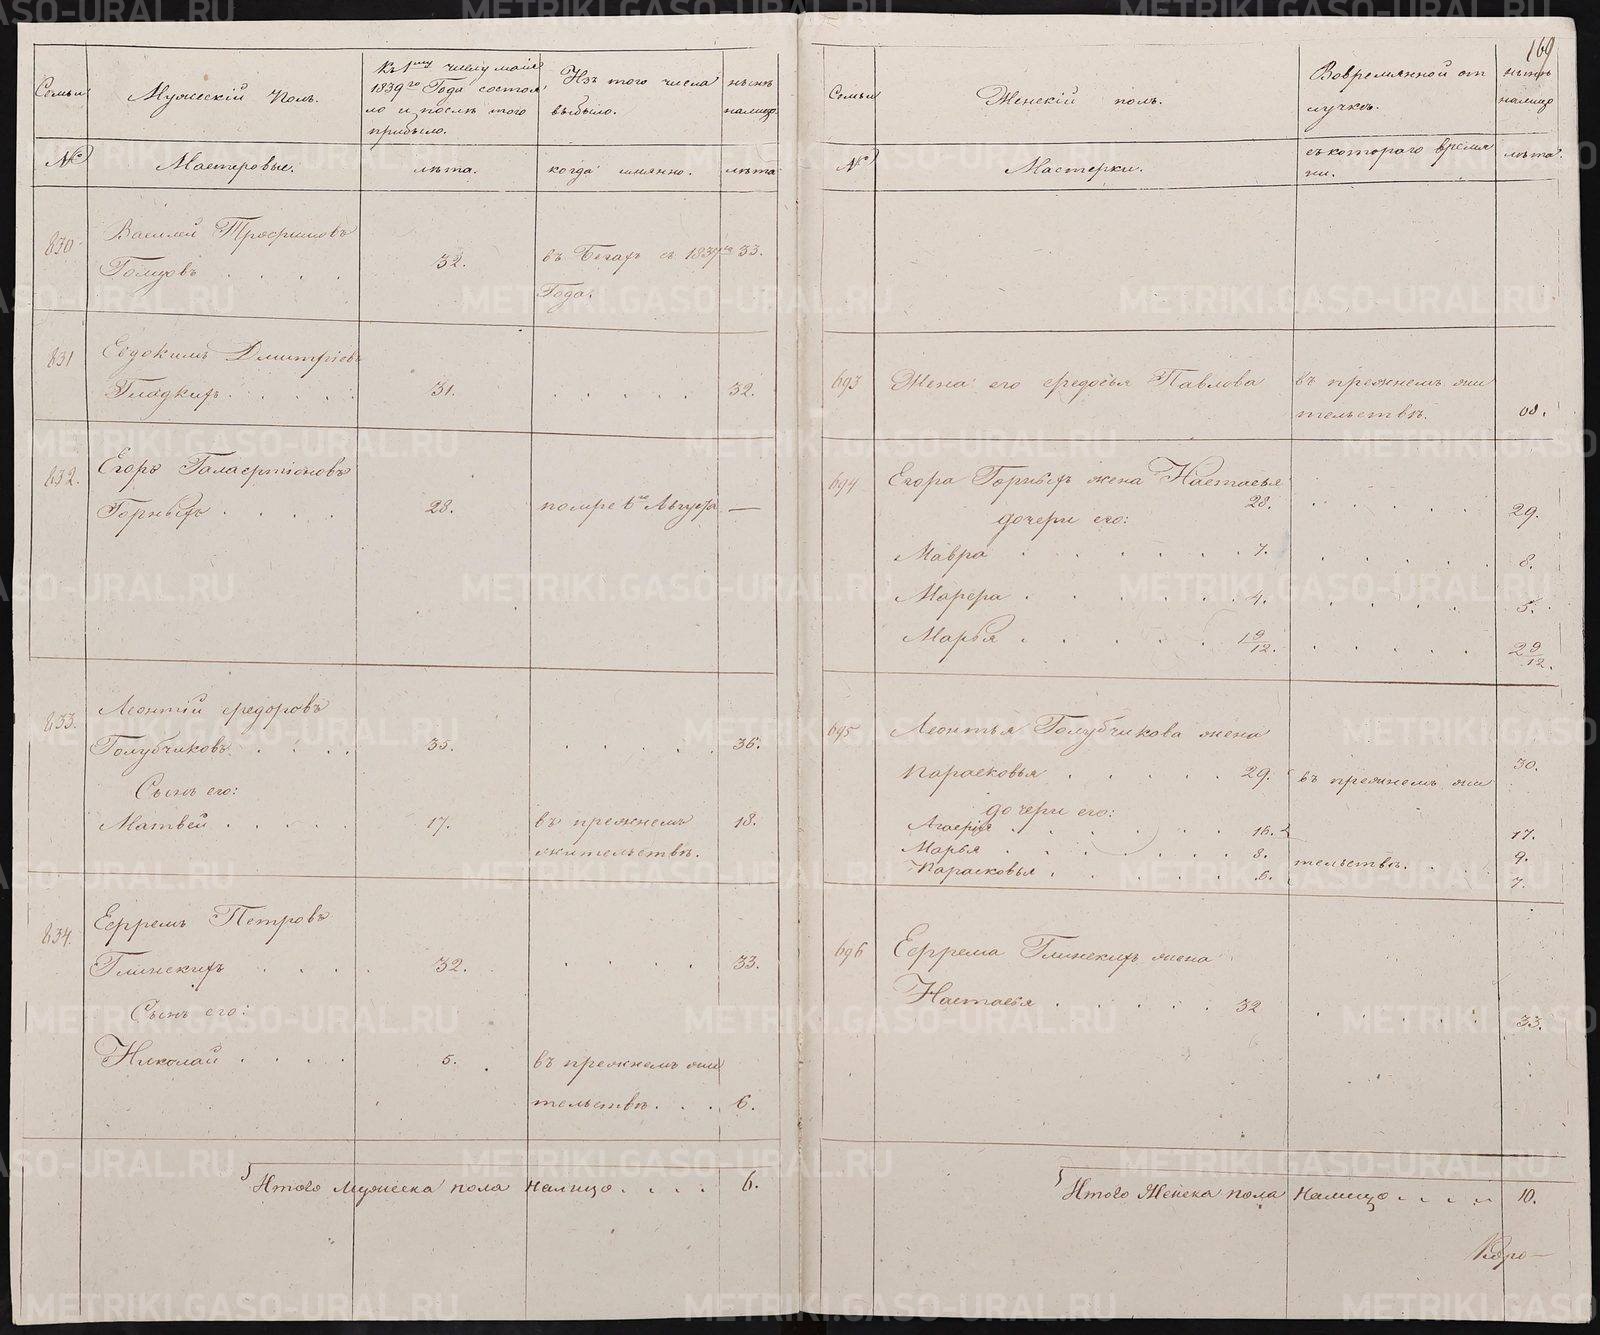 169
Семьи
Мужескій Полъ.
Къ 1му числу маія
1839го Года состоя
ло и послѣ того
прибыло.
Изъ того числа
выбыло.
нынѣ
налицо.
№
Мастеровые.
лѣта.
когда имянно.
лѣта
830
Василей Трофимовъ
въ бегахъ съ 1837го 33.
32.
Года.
831
Евдокимъ Дмитріевъ
Гладкихъ . . . . .
31.
. . . . .
32.
832.
Егоръ Галактіоновъ
Горныхъ . . . .
28.
помре 6го Августа
—
833.
Леонтій Федоровъ
Голубчиковъ . . . .
35.
. . . . .
36.
Сынъ его:
Матвей . . . . .
17.
въ прежнемъ
18.
жительствѣ.
834.
Ефремъ Петровъ
Глинскихъ . . . .
32.
. . . .
33.
Сынъ его:
Николай . . . .
5.
въ прежнемъ жи
тельствѣ. . . .
6.
Итого мужеска пола налицо . . . .
6.
Семьи
Женскій полъ.
Вовремянной от
лучкѣ.
нынѣ
налицо
№
Мастерки.
съ котораго время
ни.
лѣта.
693
Жена его Федосья Павлова
въ прежнемъ жи
тельствѣ.
694
Егора Горныхъ жена Настасья
28.
. . . . .
29.
дочери его:
Мавра . . . . . .
7.
. . . . .
8.
. . . . . .
4.
. . . . .
5.
Марья . . . . .
1 9/12.
. . . . .
2 9/12.
695
Леонтья Голубчикова жена
Парасковья . . . . .
29.
въ прежнемъ жи
30.
дочери его:
Агафія . . . . . .
16.
17.
Марья . . . . . . .
8.
тельствѣ. . .
9.
Парасковья . . . . .
6.
7.
696
Ефрема Глинскихъ жена
Настасья . . . . .
32
. . . . . .
33.
Итого Женска пола налицо . . . . .
10.
METRIKI.GASO-URAL.RU